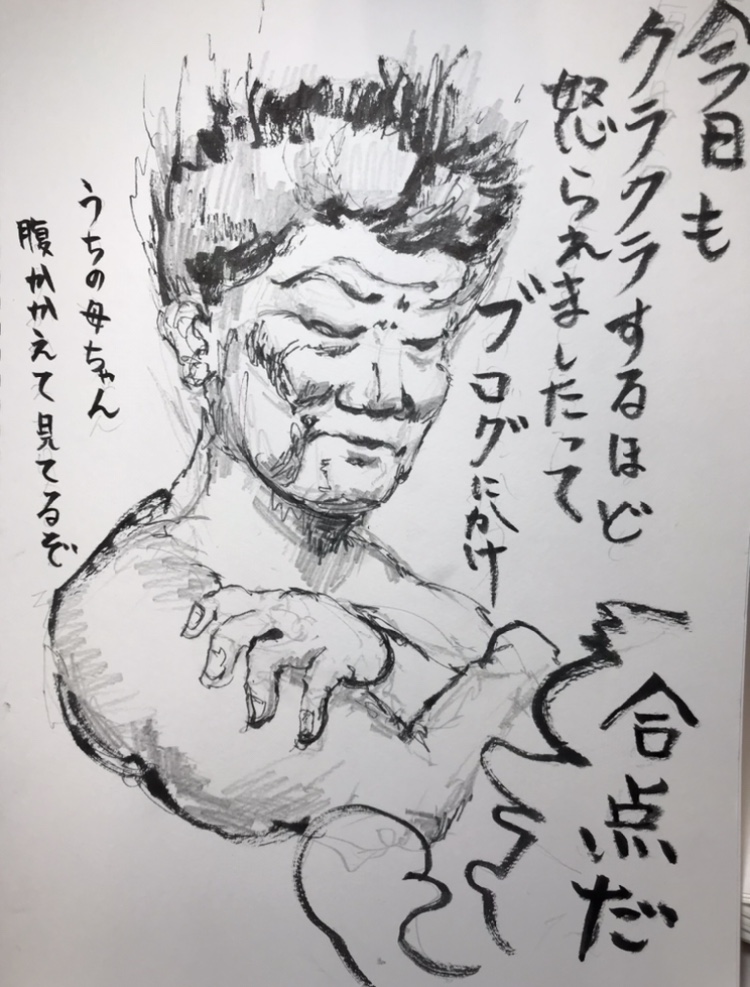 今日も
クラクラするほど
怒られましたって
ブログにかけ
合点だ
うちの母ちゃん
腹かかえて見てるぞ